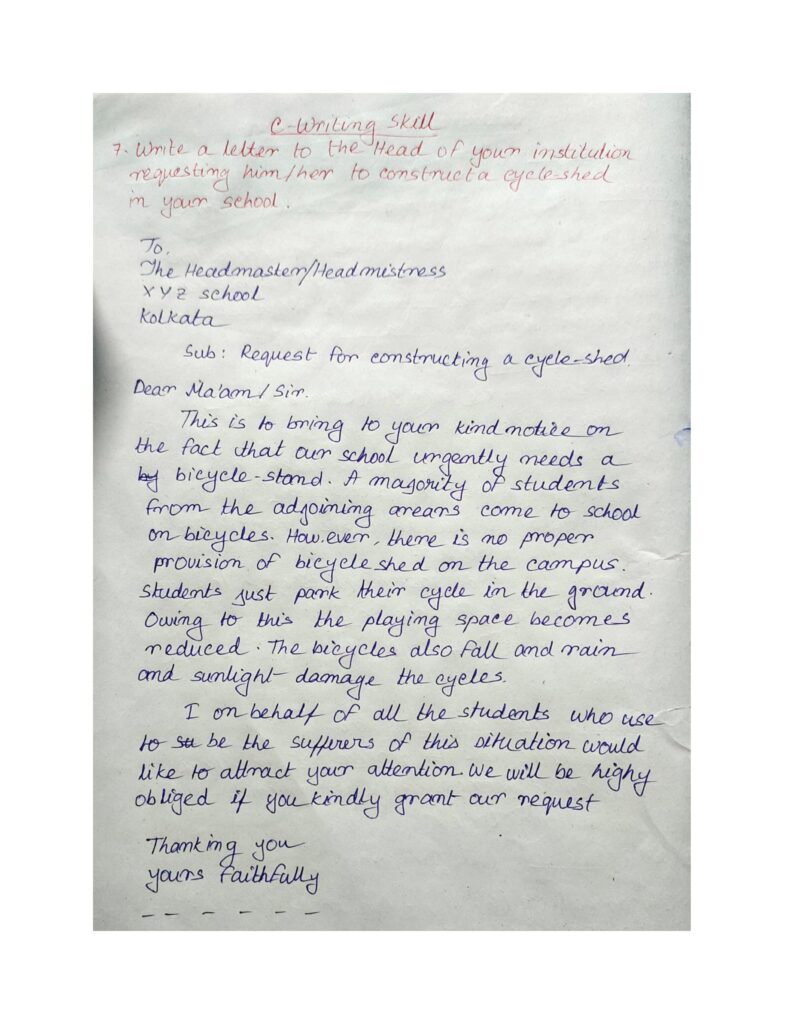 C-Writing Skill
7. Write a letter to the Head of your institution
requesting him/her to construct a cycle-shed
in your school.
To,
The Headmaster/Headmistress
XYZ school
Kolkata
Sub: Request for constructing a cycle-shed.
Dear Ma'am/Sir.
This is to bring to your kind notice on
the fact that our school urgently needs a
by bicycle-stand. A majority of students
from the adjoining arears come to school
on bicycles. However, there is no proper
provision of bicycle shed on the campus.
Students just park their cycle in the ground.
Owing to this the playing space becomes
reduced. The bicycles also fall and rain
and sunlight damage the cycles.
I on behalf of all the students who use
to su be the sufferers of this situation would
like to attract your attention. We will be highy
obliged if you kindly grant our request
Thanking you
yours faithfully